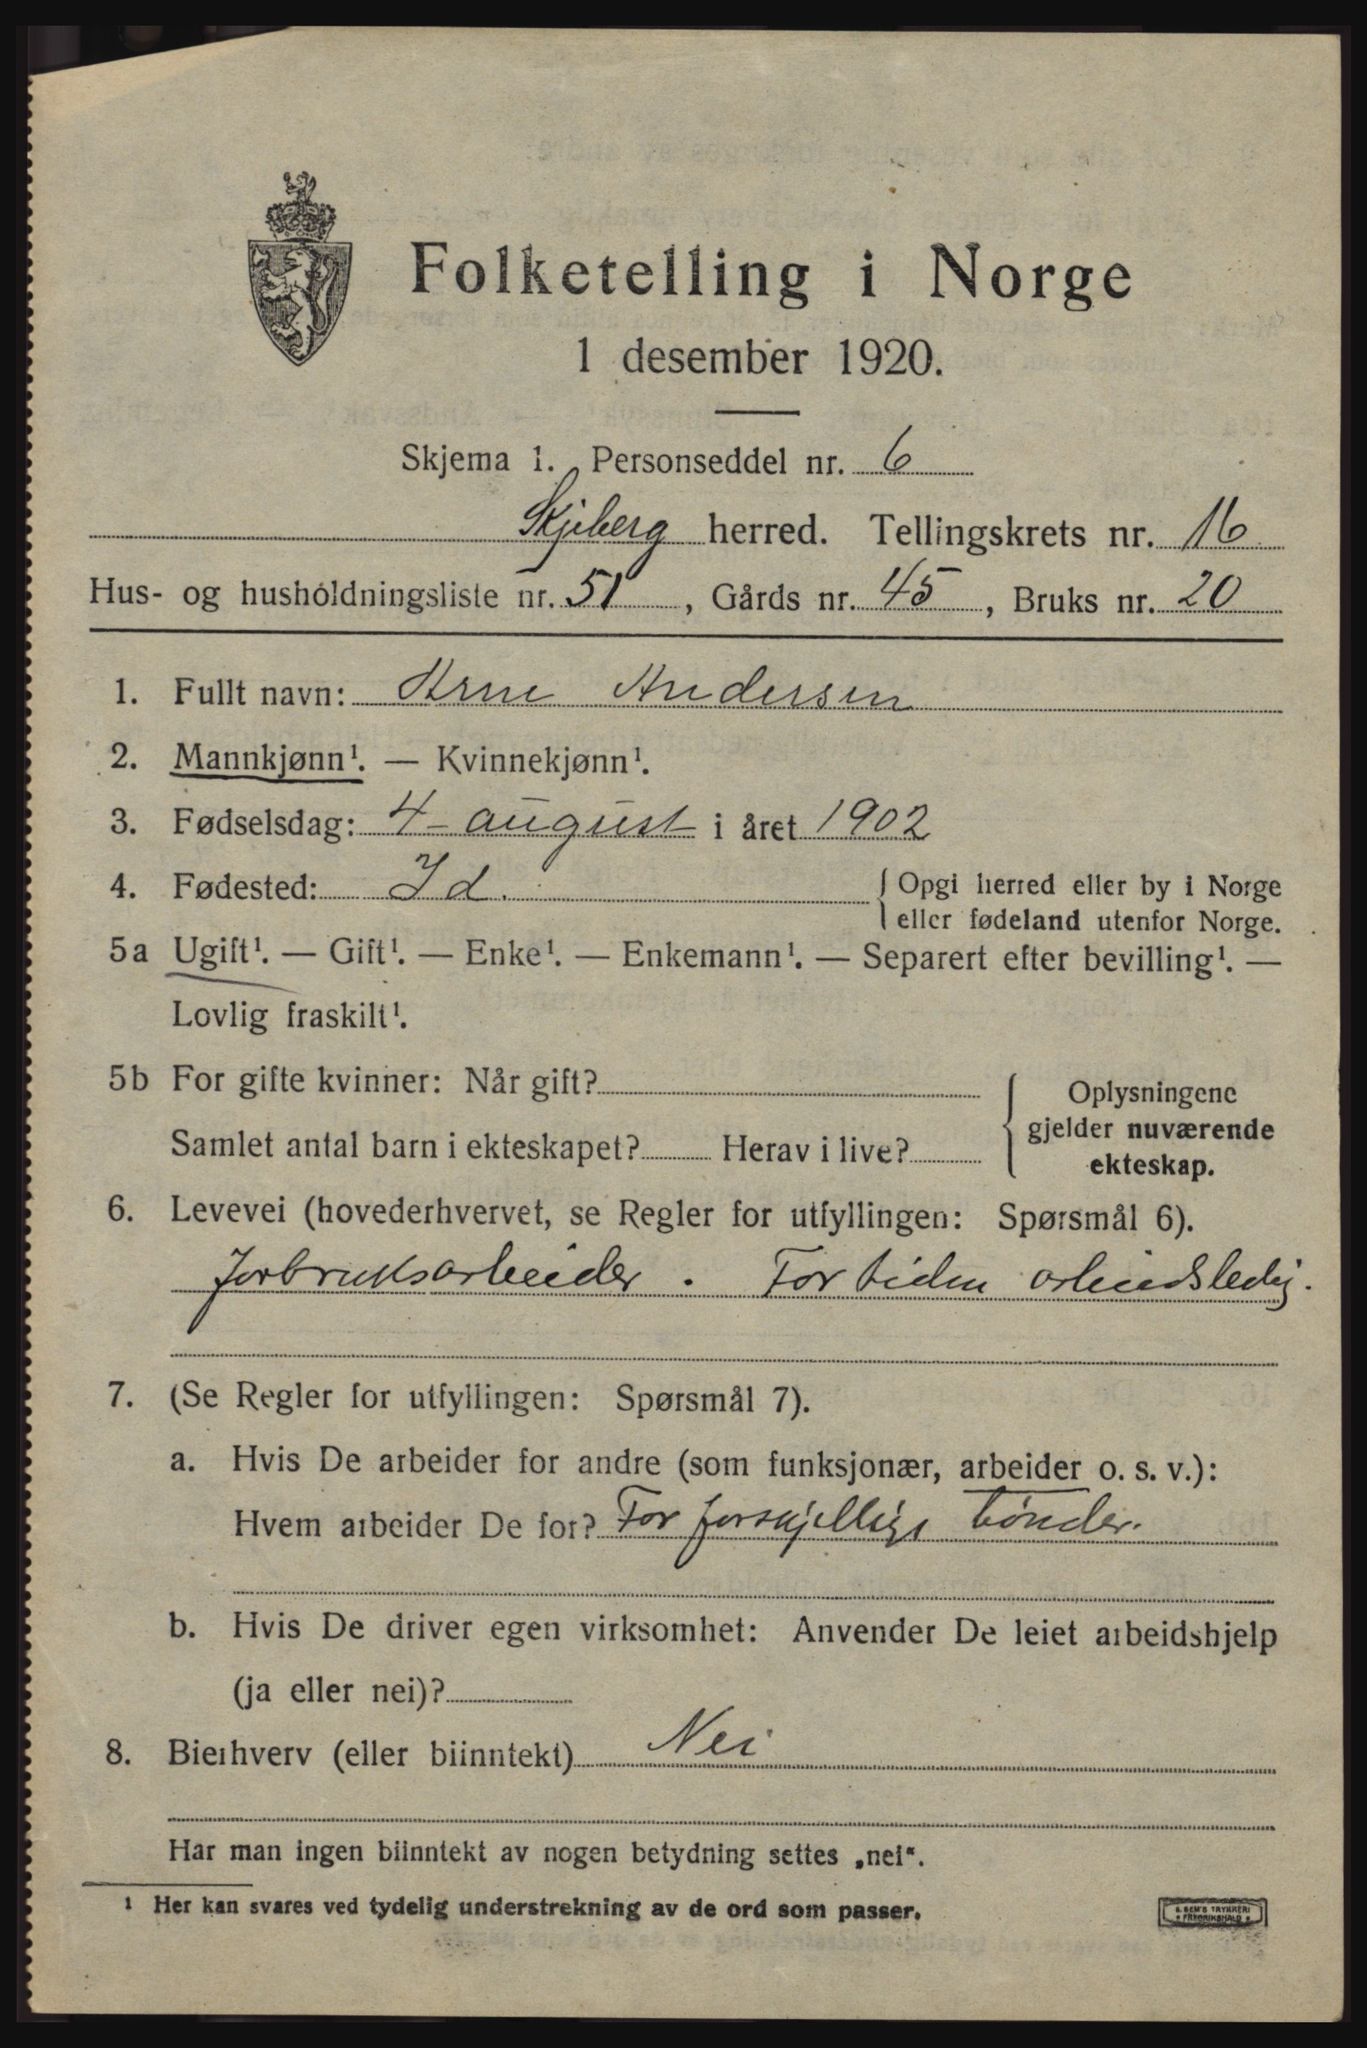 Folketelling i Norge
1 desember 1920.
Skjema 1. Personseddel nr. 6
Skjeberg herred. Tellingskrets nr. 16
Hus- og husholdningsliste nr. 51, Gårds nr. 45, Bruks nr. 20
1. Fullt navn: Arne Andersen
2. Mannkjønn¹. — Kvinnekjønn¹.
3. Fødselsdag: 4 august i året 1902
4. Fødested: Id. { Opgi herred eller by i Norge
eller fødeland utenfor Norge.
5a Ugift¹. — Gift¹. — Enke¹. — Enkemann¹. — Separert efter bevilling¹. —
Lovlig fraskilt¹.
5b For gifte kvinner: Når gift?
Samlet antal barn i ekteskapet? Herav i live?
{ Oplysningene
gjelder nuværende
ekteskap.
6. Levevei (hovederhvervet, se Regler for utfyllingen: Spørsmål 6).
Jorbruksarbeider. For tiden arbeidsledig.
7. (Se Regler for utfyllingen: Spørsmål 7).
a. Hvis De arbeider for andre (som funksjonær, arbeider o. s. v.):
Hvem arbeider De for? For forskjellige bønder.
b. Hvis De driver egen virksomhet: Anvender De leiet arbeidshjelp
(ja eller nei)?
8. Bierhverv (eller biinntekt) Nei
Har man ingen biinntekt av nogen betydning settes „nei“.
¹ Her kan svares ved tydelig understrekning av de ord som passer.
E. SEM'S TRYKKERI
FREDRIKSHALD